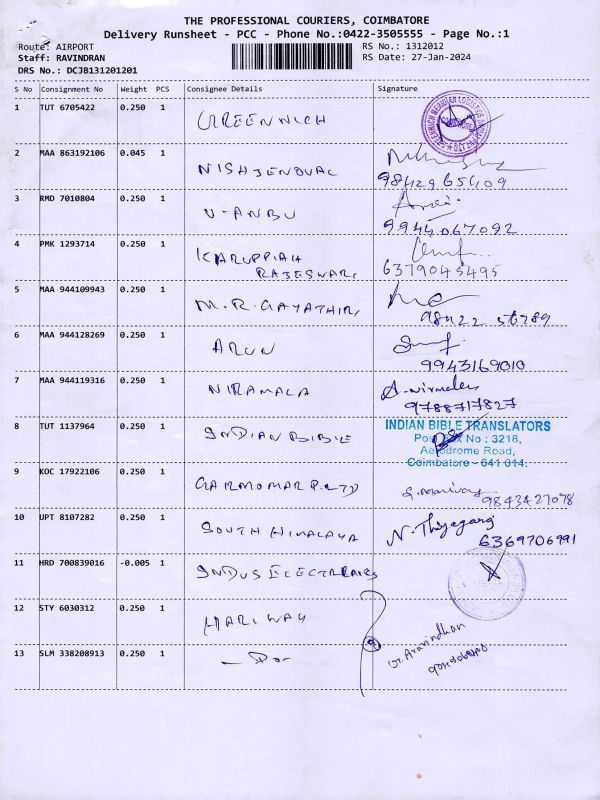 THE PROFESSIONAL COURIERS, COIMBATORE
Delivery Runsheet - PCC - Phone No.:0422-3505555 - Page No.:1
Route: AIRPORT RS No.: 1312012
Staff: RAVINDRAN RS Date: 27-Jan-2024
DRS No.: DCJB131201201
S No Consignment No Weight PCS Consignee Details Signature
1 TUT 6705422 0.250 1 GREENWICH
2 MAA 863192106 0.045 1 NISHJENOVAL
9842965409
3 RMD 7010804 0.250 1 V-ANBU
9944067092
4 PMK 1293714 0.250 1 KARUPPIAH
RAJESWARI 6379045495
5 MAA 944109943 0.250 1 M.R.GAYATHIRI
98422 56789
6 MAA 944128269 0.250 1 ARUN
9943169010
7 MAA 944119316 0.250 1 NIRAMALA
9788717827
8 TUT 1137964 0.250 1 INDIAN BIBLE INDIAN BIBLE TRANSLATORS
Post Box No : 3218,
Aerodrome Road,
Coimbatore - 641 014.
9 KOC 17922106 0.250 1
9843427098
10 UPT 8107282 0.250 1 SOUTH HIMALAYA N. Thiyagaraj
6369706991
11 HRD 700839016 -0.005 1 INDUS ELECTRICALS
12 STY 6030312 0.250 1 HARIWAY
13 SLM 338208913 0.250 1 -Do-
Aravindhan